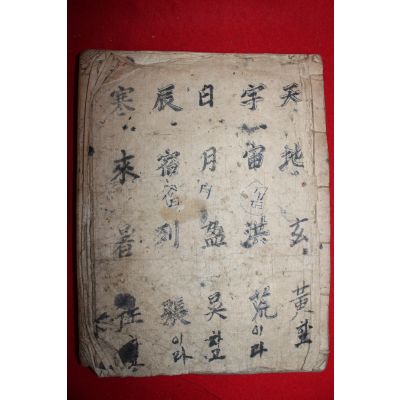 天地玄黃
宇宙洪荒이라
日月盈昃하고
辰宿列張이라
寒來暑往